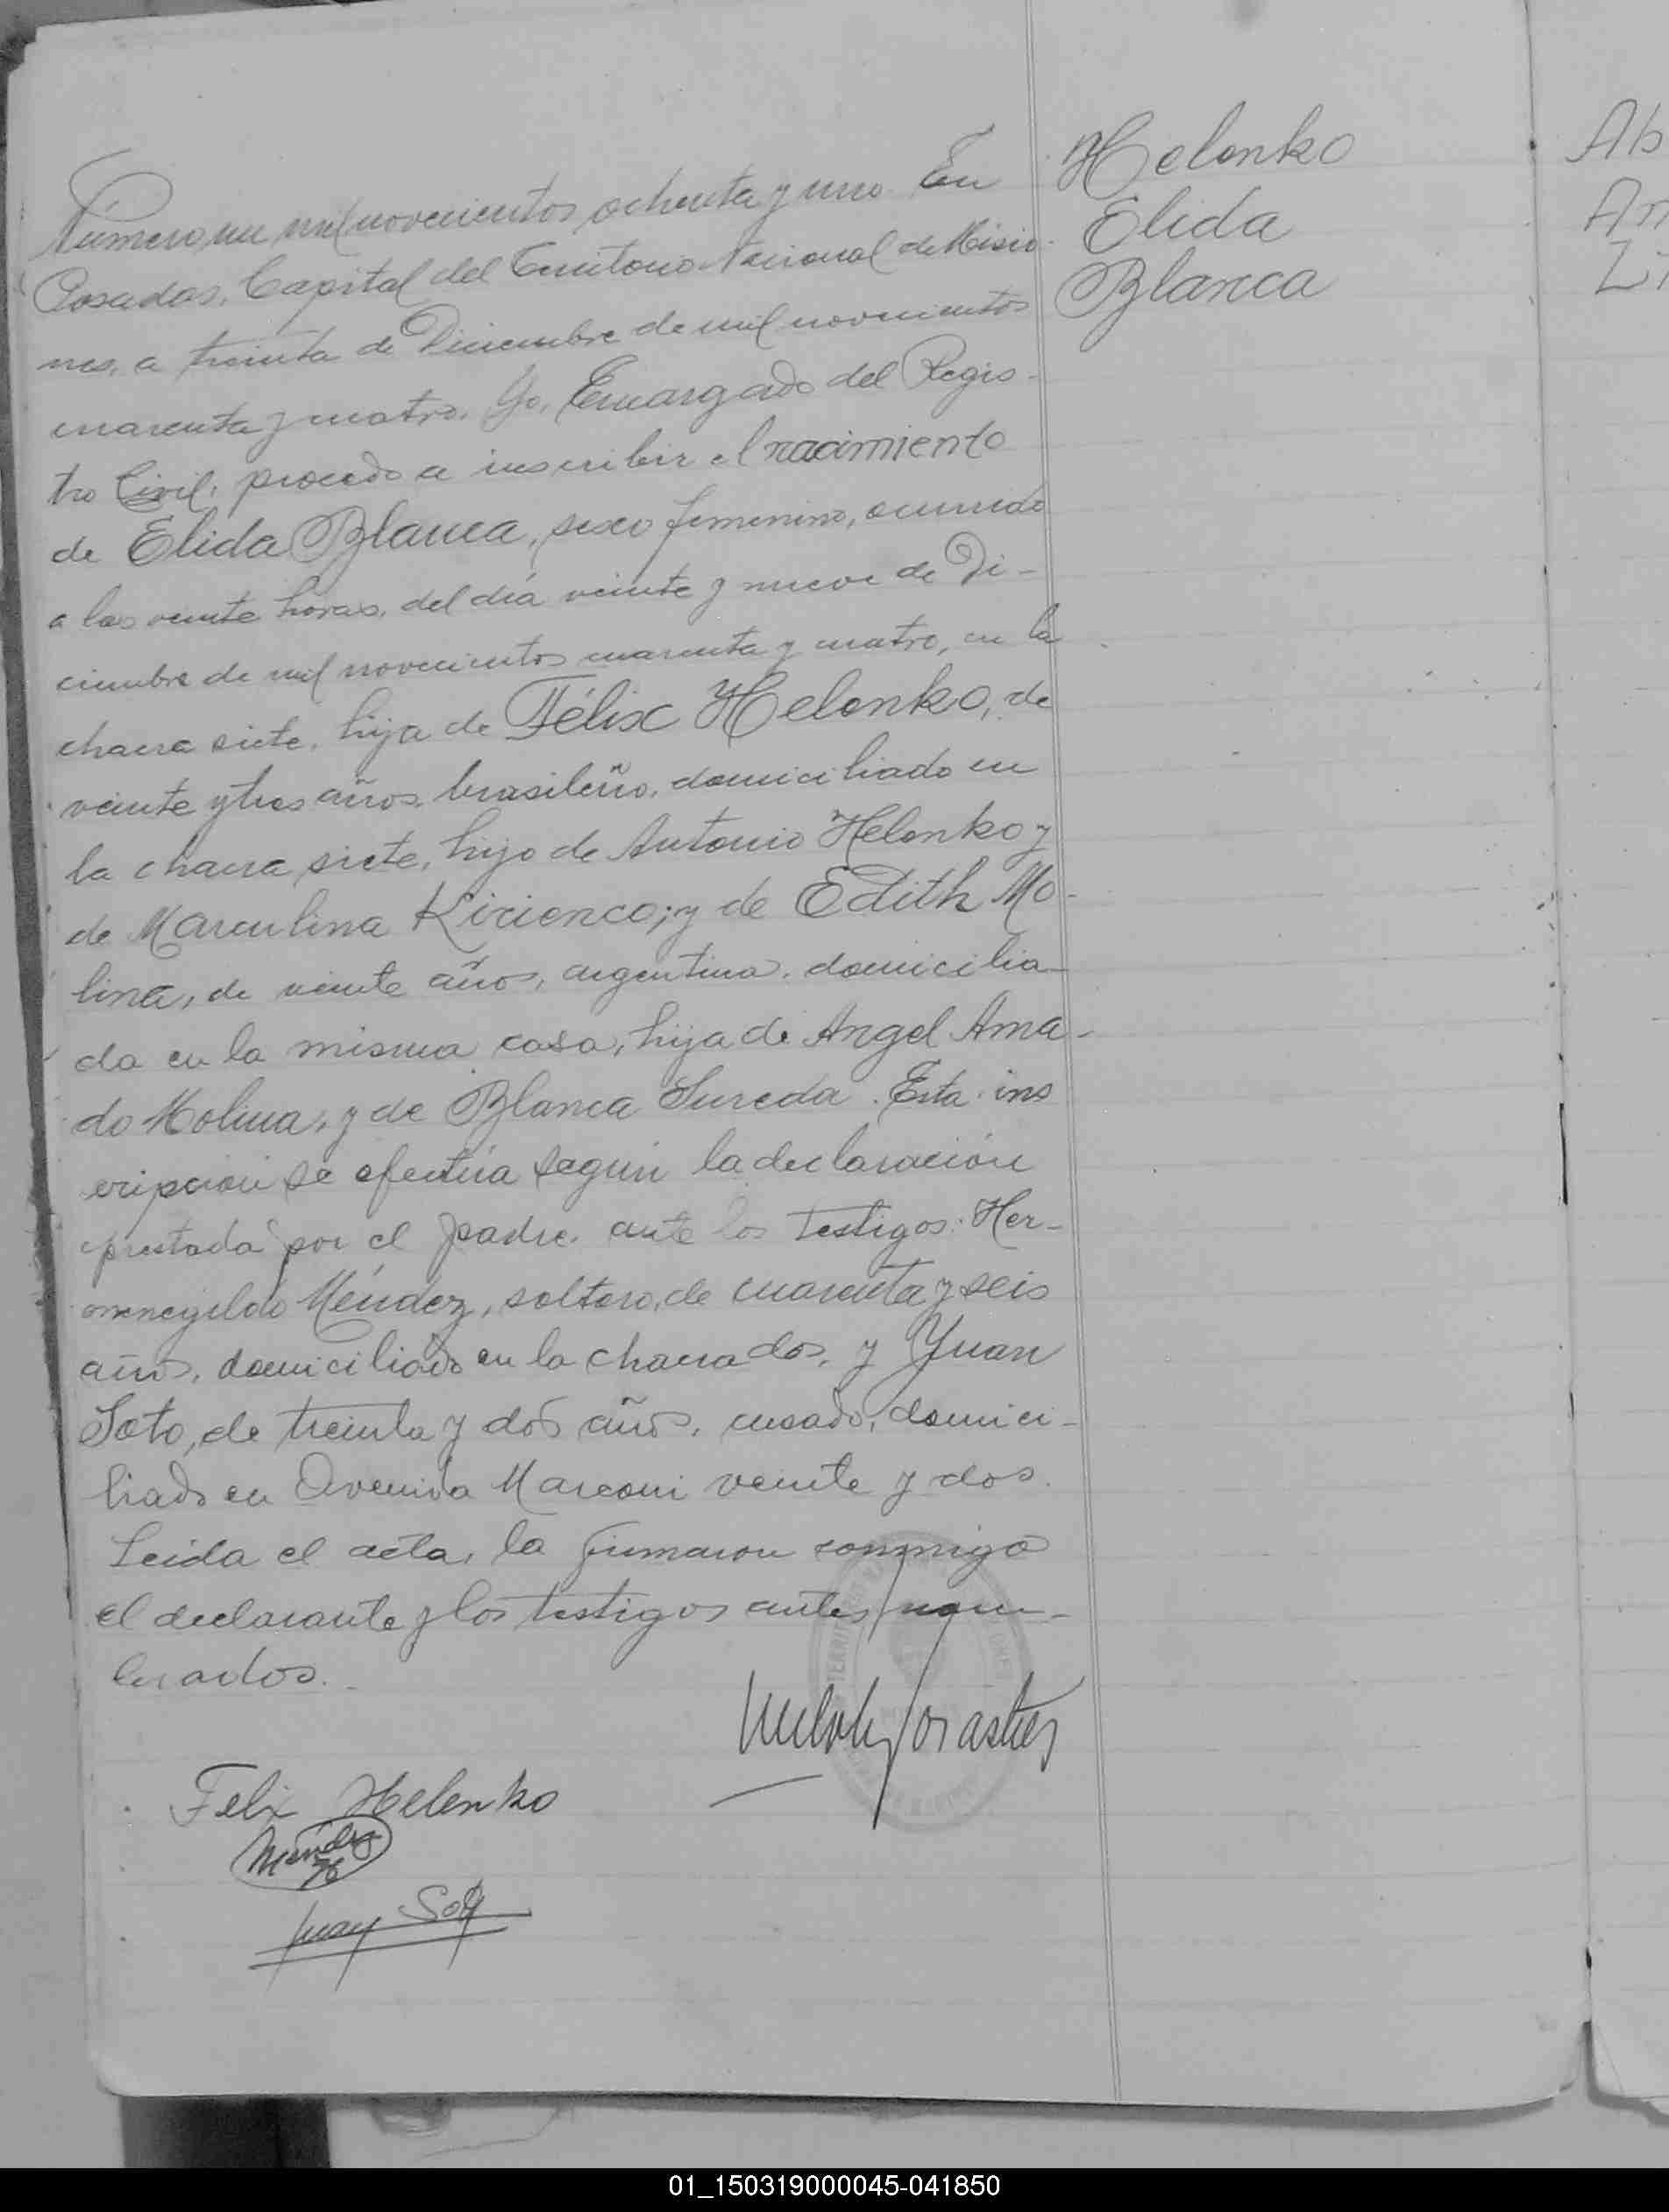 Número un mil novecientos ochenta y uno En
Posadas, Capital del Territorio Nacional de Misio-
nes, a treinta de Diciembre de mil novecientos
cuarenta y cuatro. Yo, Encargado del Regis-
tro Civil, procedo a inscribir el nacimiento
de Elida Blanca, sexo femenino, ocurrido
a las veinte horas, del día veinte y nueve de Di-
ciembre de mil novecientos cuarenta y cuatro, en la
chacra siete, hija de Félix Helenko, de
veinte y tres años, brasileño, domiciliado en
la chacra siete, hijo de Antonio Helenko y
de Marculina Kirienco; y de Edith Mo-
lina, de veinte años, argentina, domicilia-
da en la misma casa, hija de Angel Ama-
do Molina, y de Blanca Sureda. Esta ins
cripción se efectúa según la declaración
prestada por el padre, ante los testigos: Her-
menegildo Méndez, soltero, de cuarenta y seis
años, domiciliado en la chacra dos, y Juan
Soto, de treinta y dos años, casado, domici-
liado en Avenida Marconi veinte y dos.
Leida el acta, la firmaron conmigo
el declarante y los testigos antes nom-
brados.
Felix Helenko
Méndez
Juan Soto
Helenko
Elida
Blanca
Ab
An
Li
01_150319000045-041850